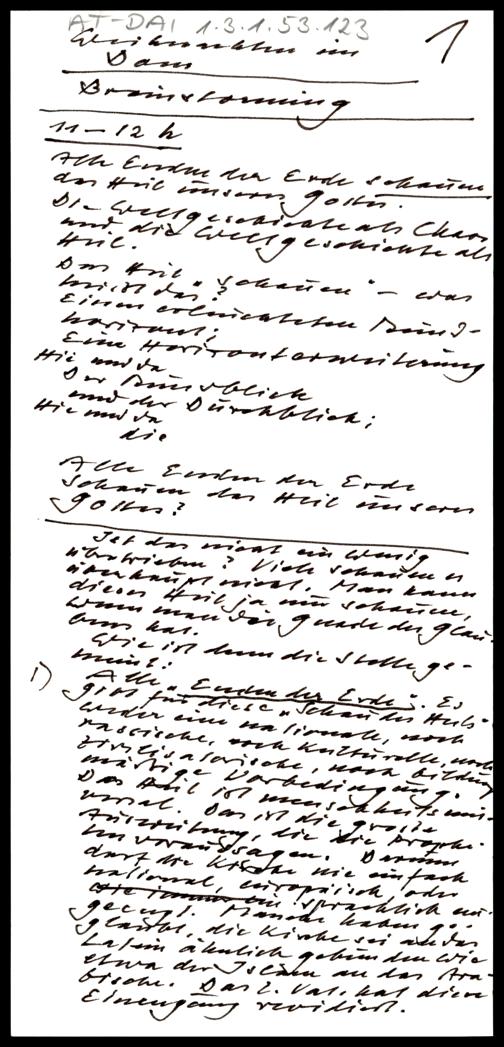 AT-DAI 1.3.1.53.123
1
Weihnachten im
Dom
Brainstorming
11-12 h
Alle Enden der Erde schauen
das Heil unseres Gottes.
Die Weltgeschichte als Chaos
und die Weltgeschichte als
Heil.
Das Heil "schauen" - was
heisst das?
Einen erleuchteten Rund-
horizont;
Eine Horizonterweiterung
Hie und da
Der Rundblick
und der Durchblick;
Hie und da
die
Alle Enden der Erde
schauen das Heil unseres
Gottes?
Ist das nicht ein wenig
übertrieben? Viele schauen es
überhaupt nicht. Man kann
dieses Heil ja nur schauen,
wenn man die Gnade des Glau-
bens hat.
Wie ist denn die Stelle ge-
meint?
1) Alle "Enden der Erde". Es
gibt für diese "Schau des Heils"
weder eine nationale, noch
rassische, noch kulturelle, noch
zivilisatorische, noch bildungs
mässige Vorbedingung.
Das Heil ist menschheitsuni-
versal. Das ist die grosse
Ausweitung, die die Prophe-
ten voraussagen. Darum
darf die Kirche nie einfach
national, europäisch, oder
sprachlich ein-
geengt. Manche haben ge-
glaubt, die Kirche sei an das
Latein ähnlich gebunden wie
etwa der Islam an das Ara-
bische. Das 2. Vat. hat diese
Einengung revidiert.